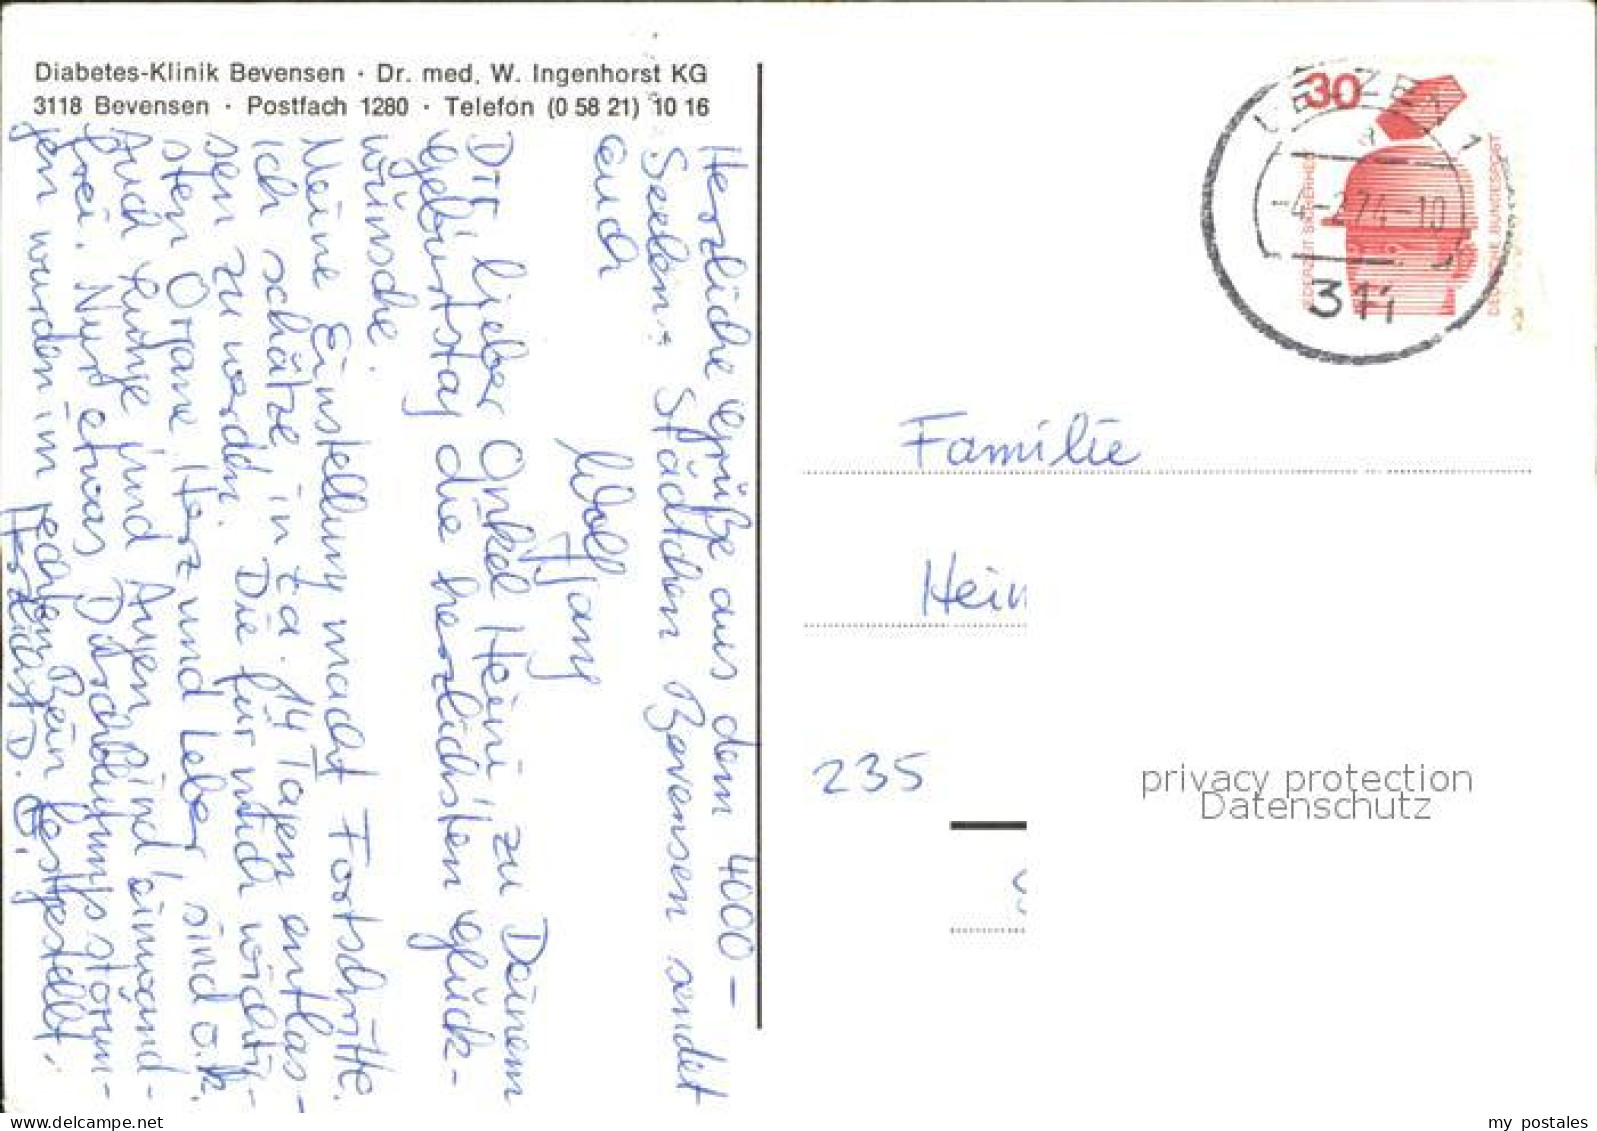 Diabetes-Klinik Bevensen · Dr. med. W. Ingenhorst KG
3118 Bevensen · Postfach 1280 · Telefon (0 58 21) 10 16
Herzliche Grüße aus dem 4000-
Seelen-Städtchen Bevensen sendet
euch
Wolfgang
Dir lieber Onkel Heini zu Deinem
Geburtstag die herzlichsten Glück-
wünsche.
Meine Einstellung macht Fortschritte.
Ich schätze, in ca. 14 Tagen entlas-
sen zu werden. Die für mich wichtig-
sten Organe Herz und Leber sind o.k.
Auch Lunge und Augen sind einwand-
frei. Nur etwas Durchblutungsstörun-
gen wurden im rechten Bein festgestellt.
Herzlichst D. O.
UELZEN 1
-4-2.74-10
311
30
JEDERZEIT SICHERHEIT
DEUTSCHE BUNDESPOST
Familie
Hein
235
privacy protection
Datenschutz
delcampe.net
my postales